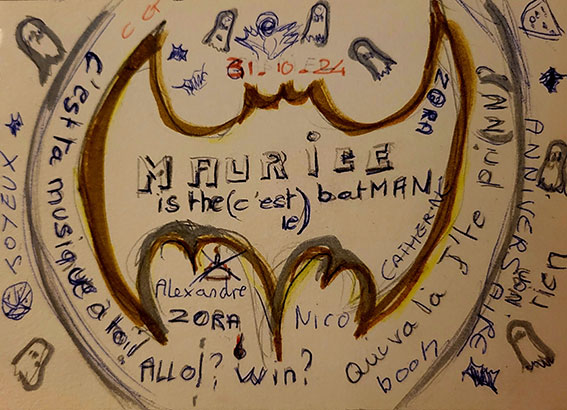 31-10-24
MAURICE
is the (c'est
le) batMAN
Alexandre
ZORA
NICO
CATHERINE
ZORA
ALLO!? Win?
c'est ta musique à toi!
Qui va là J'te prind
booh
JOYEUX
ANNIVERSAIRE
rien